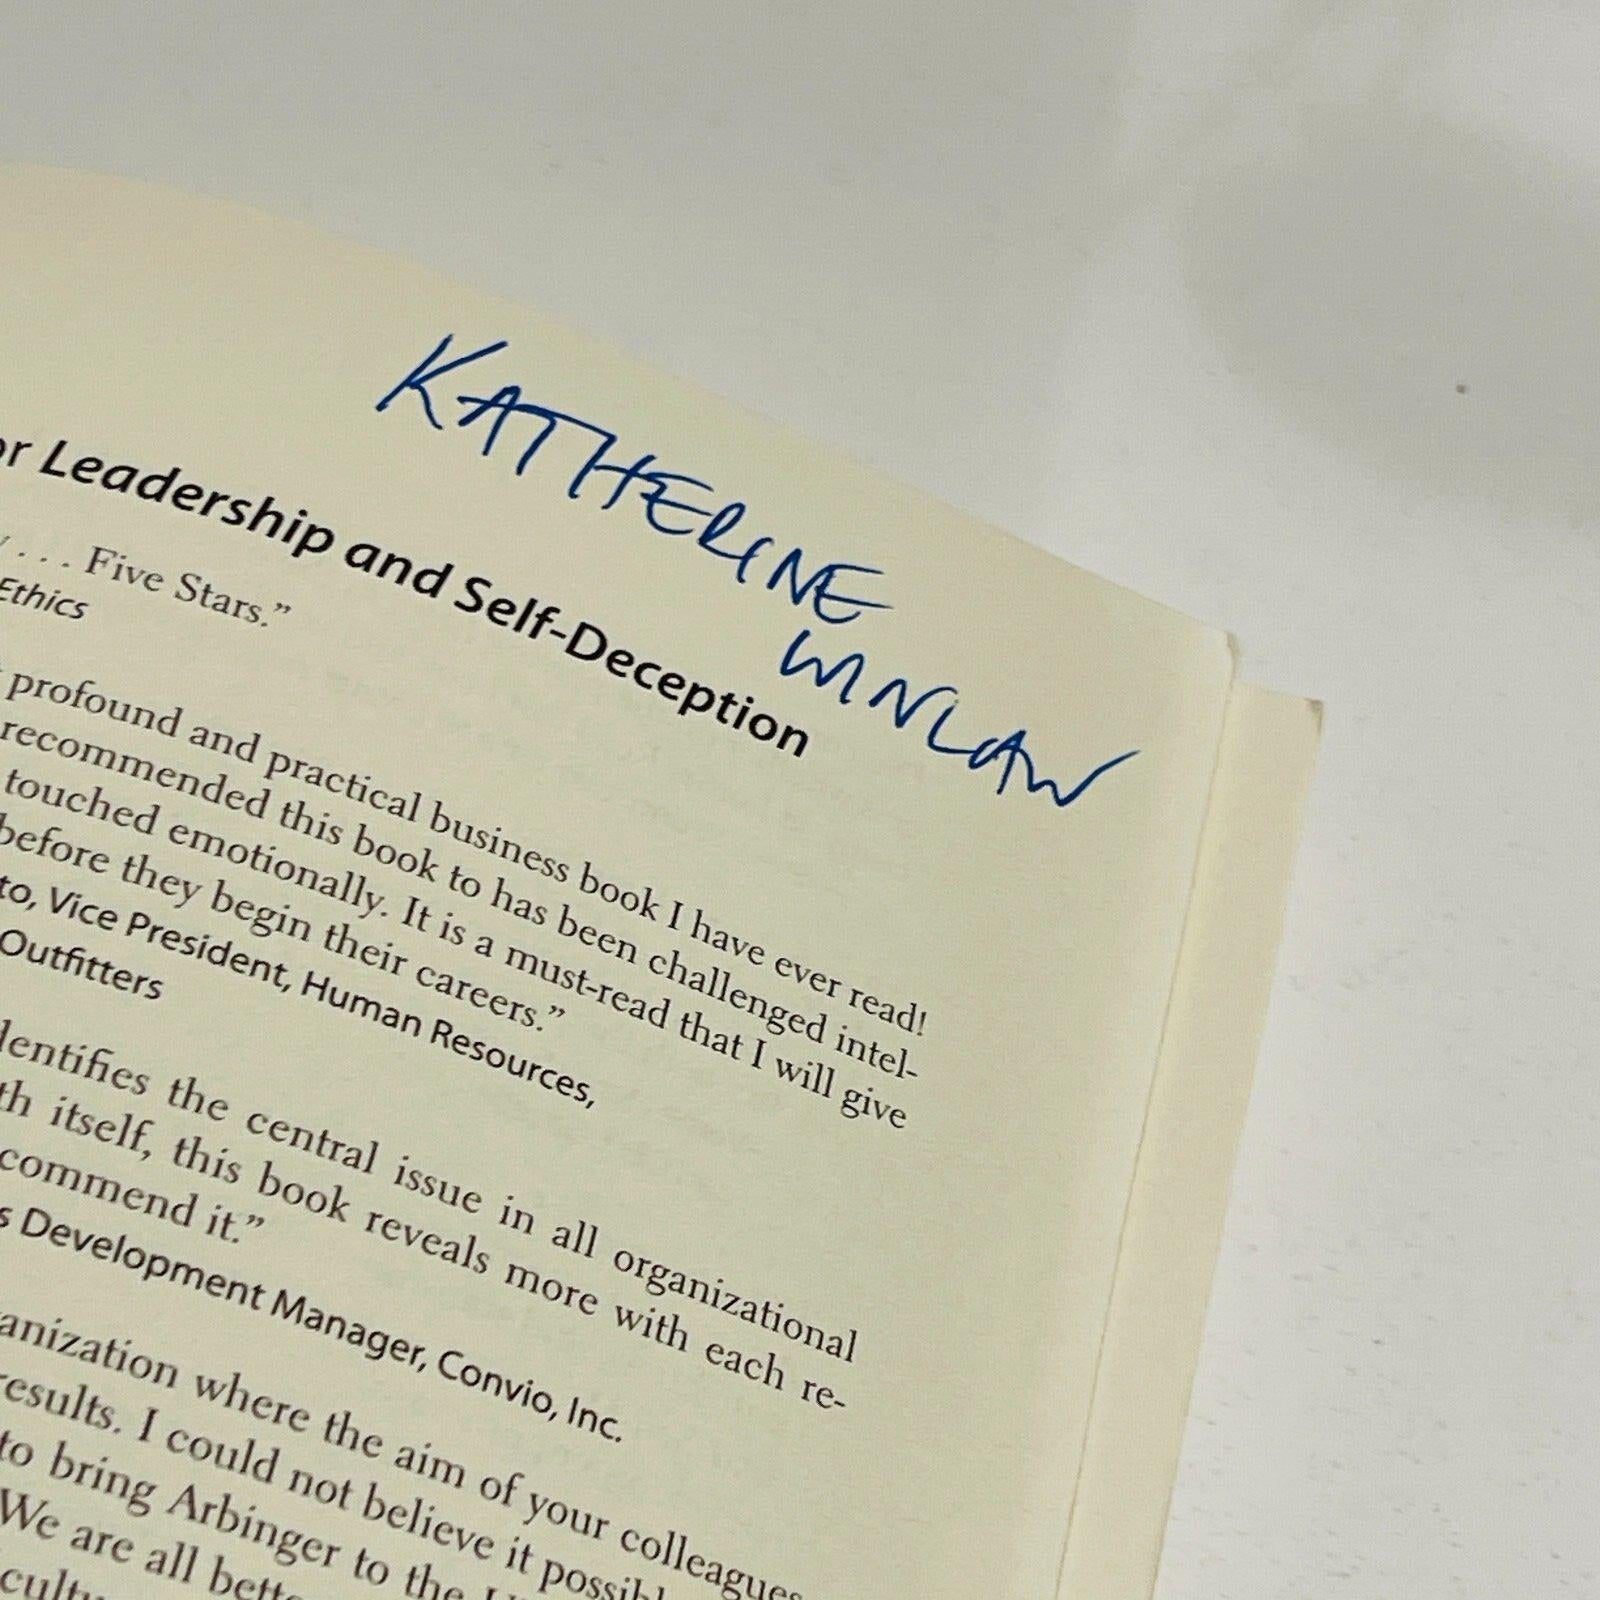 KATHERINE
WINLAW
or Leadership and Self-Deception
. . . Five Stars.”
Ethics
profound and practical business book I have ever read!
recommended this book to has been challenged intel-
touched emotionally. It is a must-read that I will give
before they begin their careers.”
to, Vice President, Human Resources,
Outfitters
dentifies the central issue in all organizational
th itself, this book reveals more with each re-
commend it.”
s Development Manager, Convio, Inc.
anization where the aim of your colleagues
results. I could not believe it possibl
to bring Arbinger to the
We are all bette
cultu